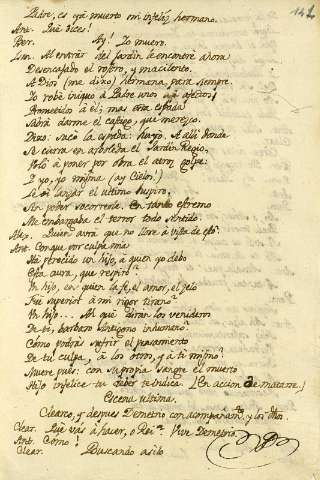 142
Padre, es yá muerto mi infeliz hermano.
Ant. Qué dices!
Ber. Ay! Yo muero.
Lin. Al entrar del Jardin le encontré ahora
Desencajado el rostro, y macilento.
A Dios (me dixo) hermana, para siempre.
Yo robé iniquo á Padre
á él; mas esta espada
Sabrá darme el castigo, que merezco.
Dixo: sacó la espada: huyó. A allí donde
Se cierra en arboleda el Jardin Regio,
Voló á poner por obra el atroz golpe:
I yo, yo misma (ay Cielos!)
Le oí lanzar el ultimo suspiro,
Sin poder socorrerle. En tanto estremo
Me embargaba el terror todo sentido.
Quien aura que no llore á vista de esto?
Ant. Conque por culpa mia
Há perecido un hijo, á quien yo debo
Esta aura, que respiro?
Un hijo, en quien la fé, el amor, el zelo
Fué superior á mi rigor tirano?
Un hijo... Ah! qué dirán los venideros
De ti, barbaro Antigono inhumano?
Cómo podrás sufrir el pensamiento
De tu culpa, á los otros, y á ti mismo?
Muere pues: con su propia sangre el muerto
Hijo infelice tu deber te indica. (En accion de matarse.)
Escena ultima.
Clearco, y despues Demetrio con acompañamto, y los dhos
Clear. Qué vás á hacer, o Rei? Vive Demetrio.
Ant. Como!
Clear. Buscando asilo